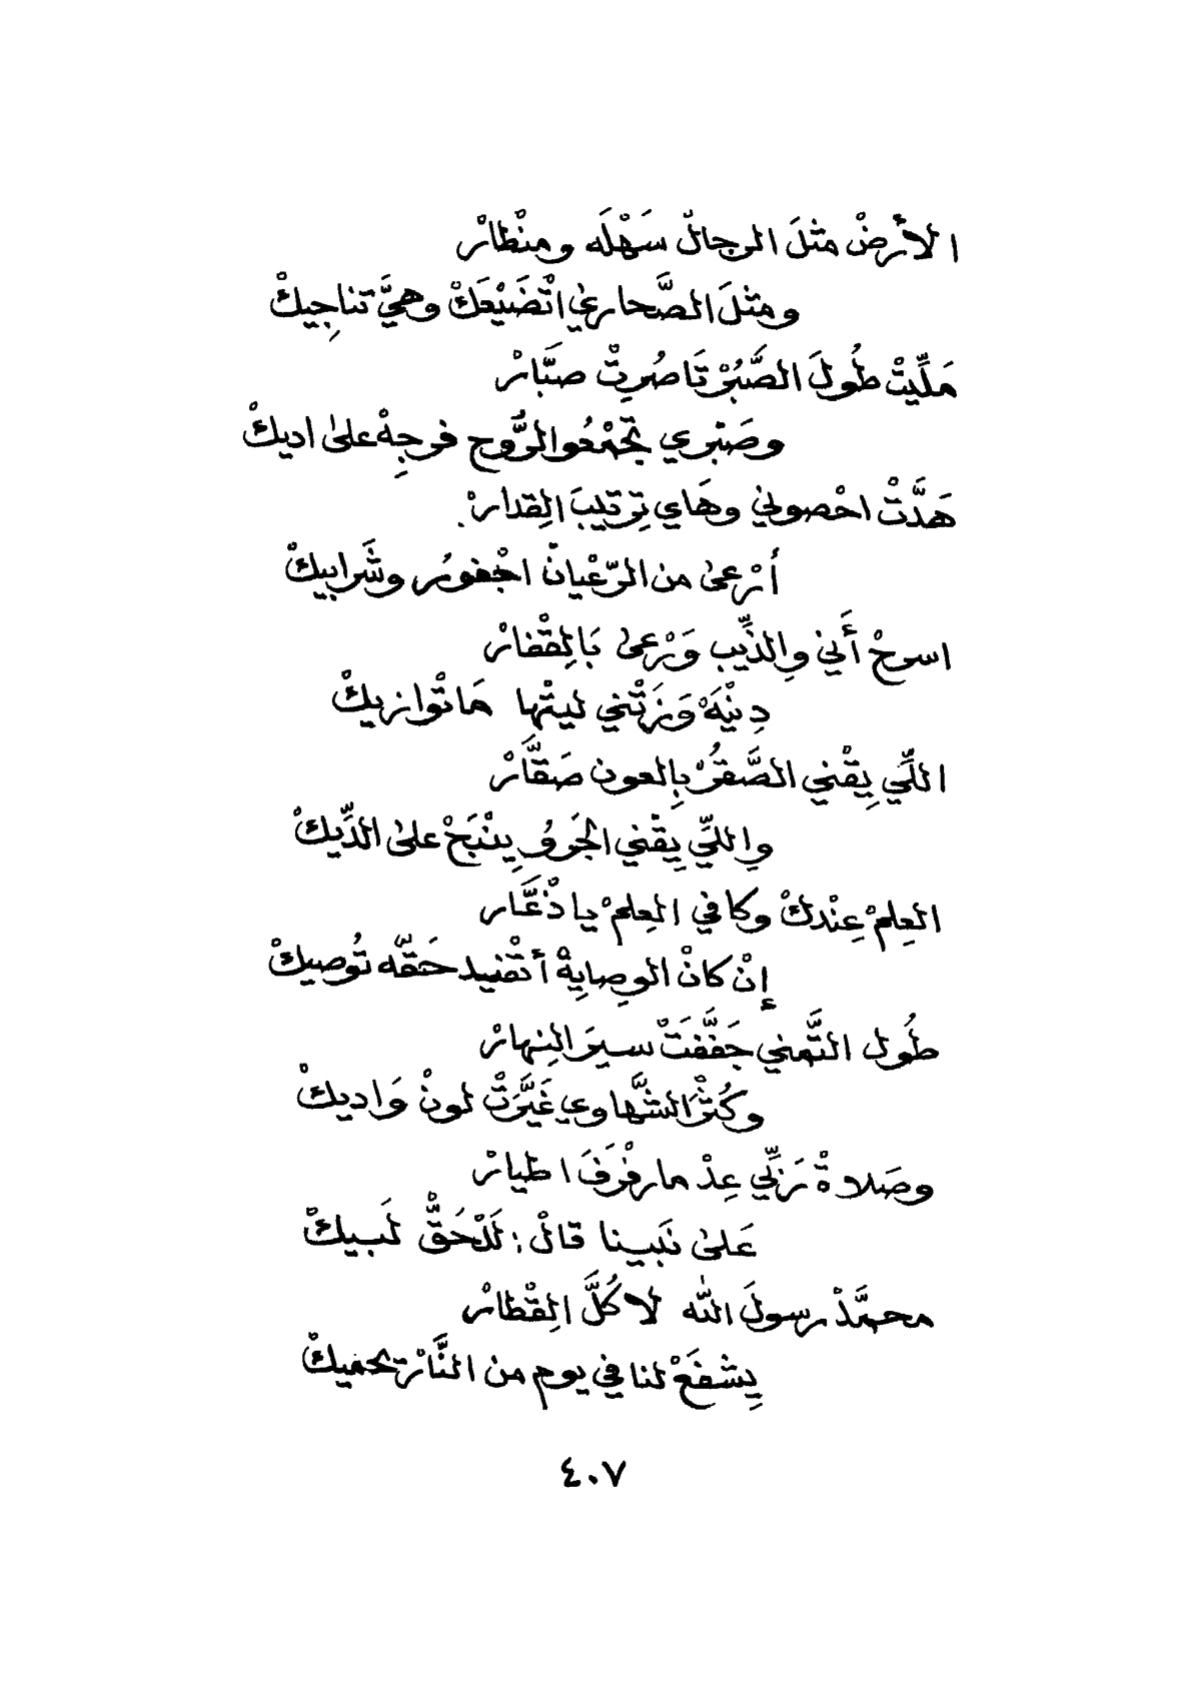 الأرضْ مثلَ الرجالْ سَهْلَه ومنْطارْ
ومثلَ الصَّحاري اتْضَيْعَكْ وهيَّ تناجِيكْ
مَلِّيتْ طُولَ الصَّبُرْ تَا صُرِتْ صبَّارْ
وصَبْري تجمْعُو الرُّوح فرجِهْ على اديكْ
هَدَّتْ احْصوني وهَاي تِرتيبَ القِدارْ
أرْعى من الرّعْيانْ اجْفورُ وشَرابيكْ
اسرحْ أَني والذِّيب وَرْعى بَالمِقْفارْ
دِنْيَهْ وَزَتْني ليتْها هَاتْوازيكْ
اللّي يِقْني الصَّقُرْ بِالعون صَقَّارْ
واللّي يِقْني الجَروُ يِنْبَحْ على الدِّيكْ
العِلمْ عِنْدكْ وكافي العِلمْ يا ذْعَّار
إنْ كانْ الوِصايِهْ أتْفيد حَقّه تُوصيكْ
طُول التَّمني جَفَّفَتْ سيرَ النِهارْ
وكُثْرَ الشَّهاوي غَيَّرَتْ لونْ وَاديكْ
وصَلاةْ رَبِّي عِدْ ما رفْرَفَ اطيارْ
عَلى نَبينا قالْ: لَلْحَقُّ لَبيكْ
محمَّدْ رسولَ الله لا كُلَّ القِطْارْ
يِشفَعْ لنا في يوم من النَّارْ تحميكْ
٤٠٧